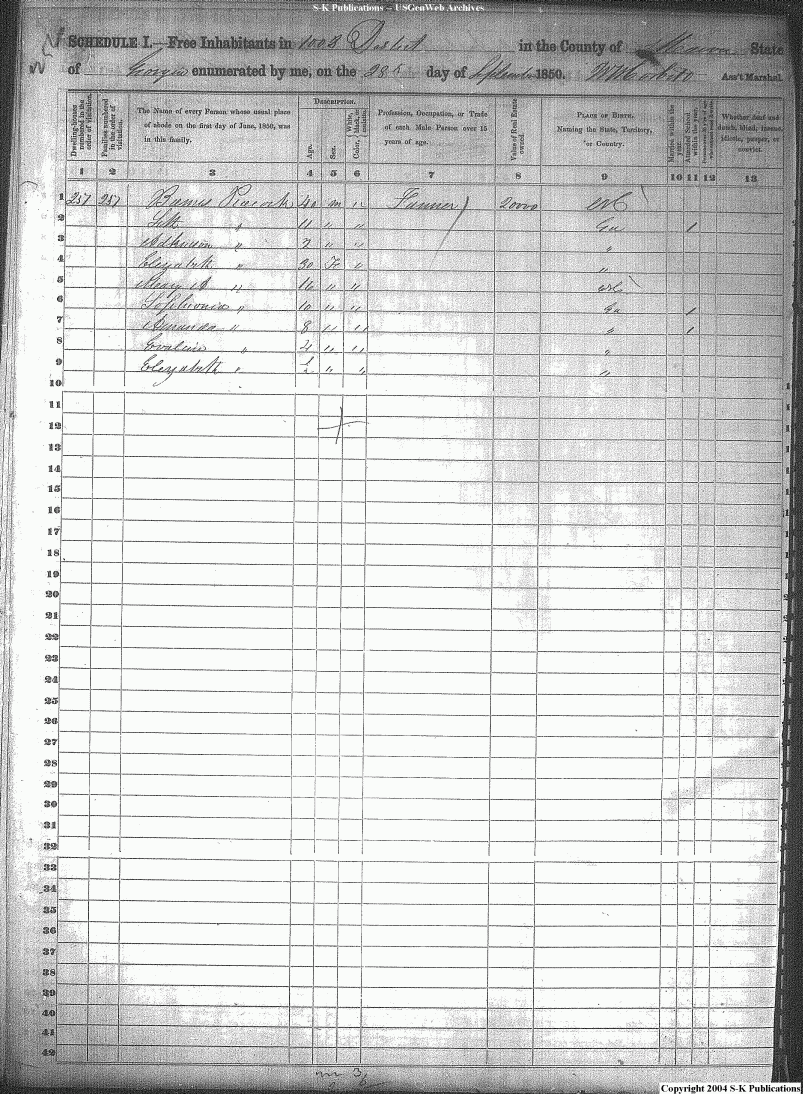 S-K Publications -- USGenWeb Archives
SCHEDULE I.—Free Inhabitants in 1003 District in the County of Macon State
of Georgia enumerated by me, on the 28 day of September 1850. Ass't Marshal.
Dwelling-houses numbered in the order of visitation.
Families numbered in the order of visitation.
The Name of every Person whose usual place of abode on the first day of June, 1850, was in this family.
DESCRIPTION.
Age.
Sex.
White, black, or mulatto.
Color,
Profession, Occupation, or Trade of each Male Person over 15 years of age.
Value of Real Estate owned.
PLACE OF BIRTH, Naming the State, Territory, or Country.
Married within the year.
Attended School within the year.
Whether deaf and dumb, blind, insane, idiotic, pauper, or convict.
1 2 3 4 5 6 7 8 9 10 11 12 13
1 257 257 Peacock 40 m " Farmer NC
2 Seth " 11 " " Ga 1
3 " 7 " " "
4 Elizabeth " 30 F " "
5 Mary A " 16 " " NC
6 Sophronia " 10 " " Ga 1
7 Amanda " 8 " " " 1
8 " 4 " " "
9 Elizabeth " 1/2 " " "
10
11
12
13
14
15
16
17
18
19
20
21
22
23
24
25
26
27
28
29
30
31
32
33
34
35
36
37
38
39
40
41
42
Copyright 2004 S-K Publications